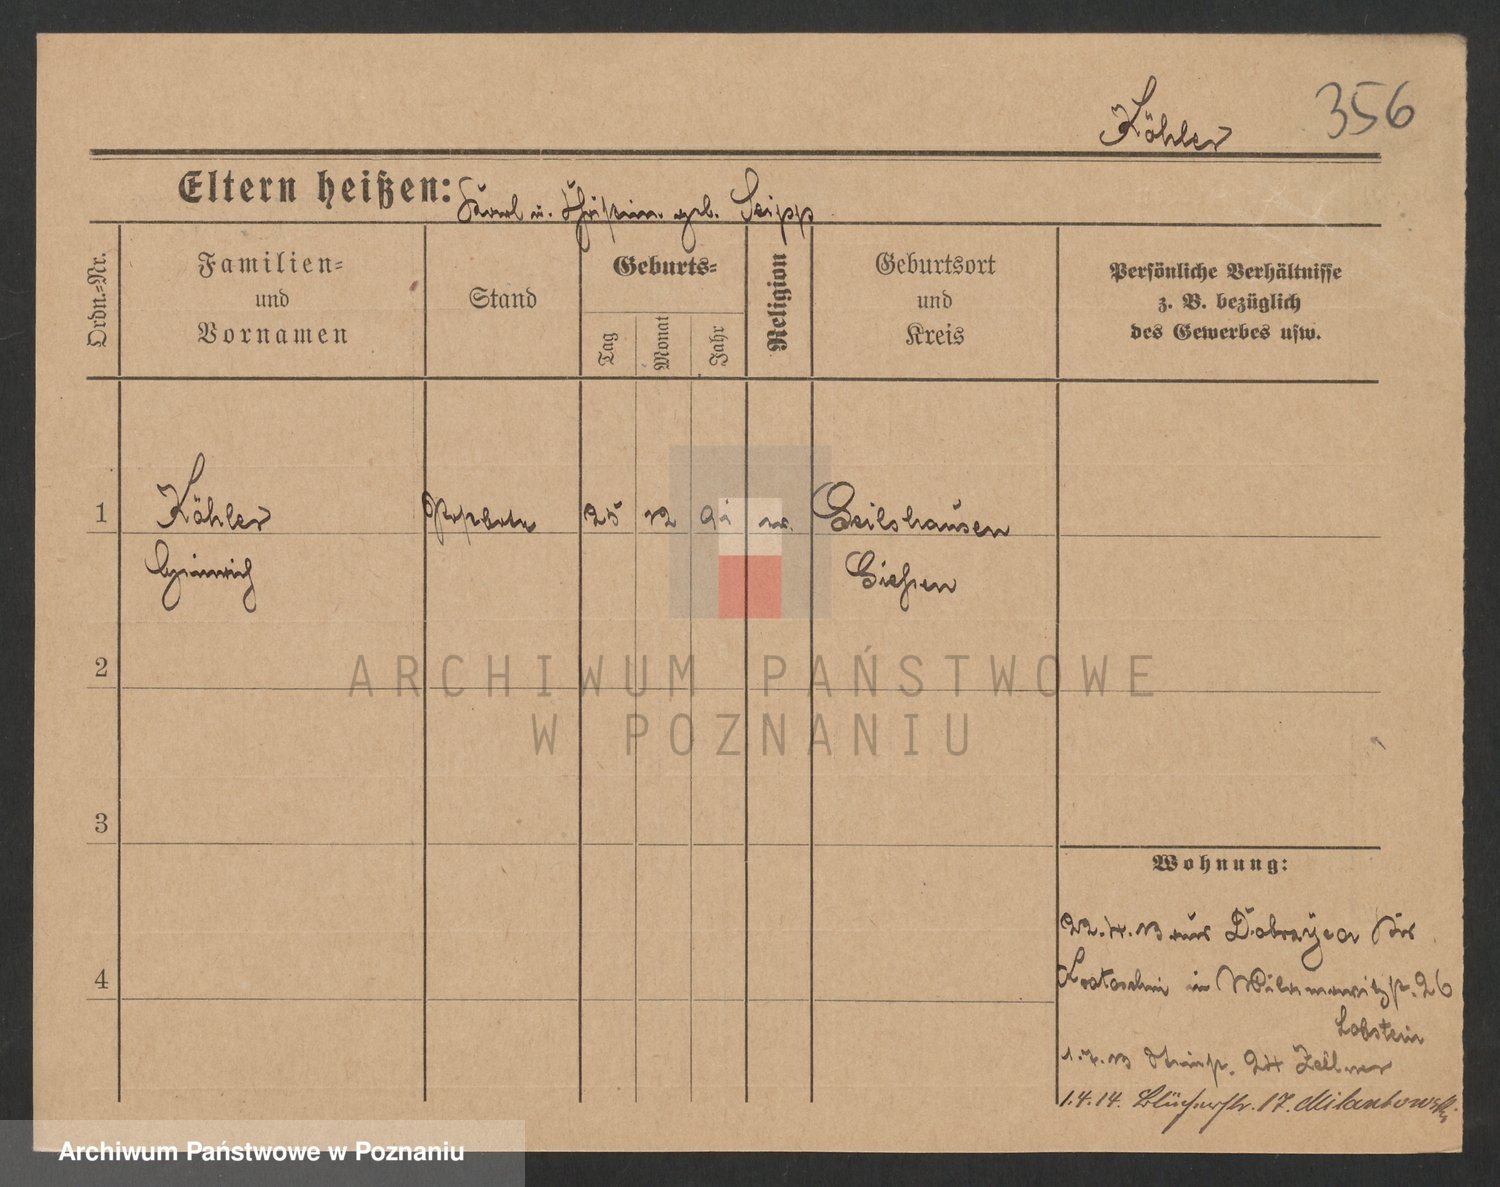 Köhler 356
Eltern heißen: Karl u. Christine geb. Seipp
Ordn.-Nr.
Familien-
und
Vornamen
Stand
Geburts-
Tag
Monat
Jahr
Religion
Geburtsort
und
Kreis
Persönliche Verhältnisse
z. B. bezüglich
des Gewerbes usw.
1 Köhler 25 12 ev. Geilshausen
Heinrich Gießen
2
3
4
Wohnung:
22.4.13 aus Dobrzyca Krs
Krotoschin in 26
Lobstein
1.7.13 24 Zellner
1.4.14. Blücherstr. 17. Milantowski
ARCHIWUM PAŃSTWOWE
W POZNANIU
Archiwum Państwowe w Poznaniu